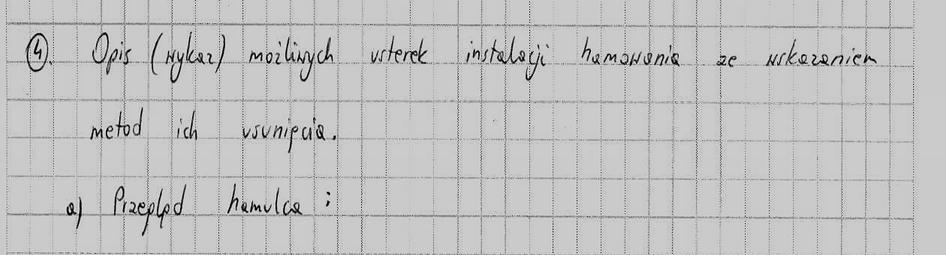 ④. Opis (wykaz) możliwych usterek instalacji hamowania ze wskazaniem
metod ich usunięcia.
a) Przegląd hamulca :